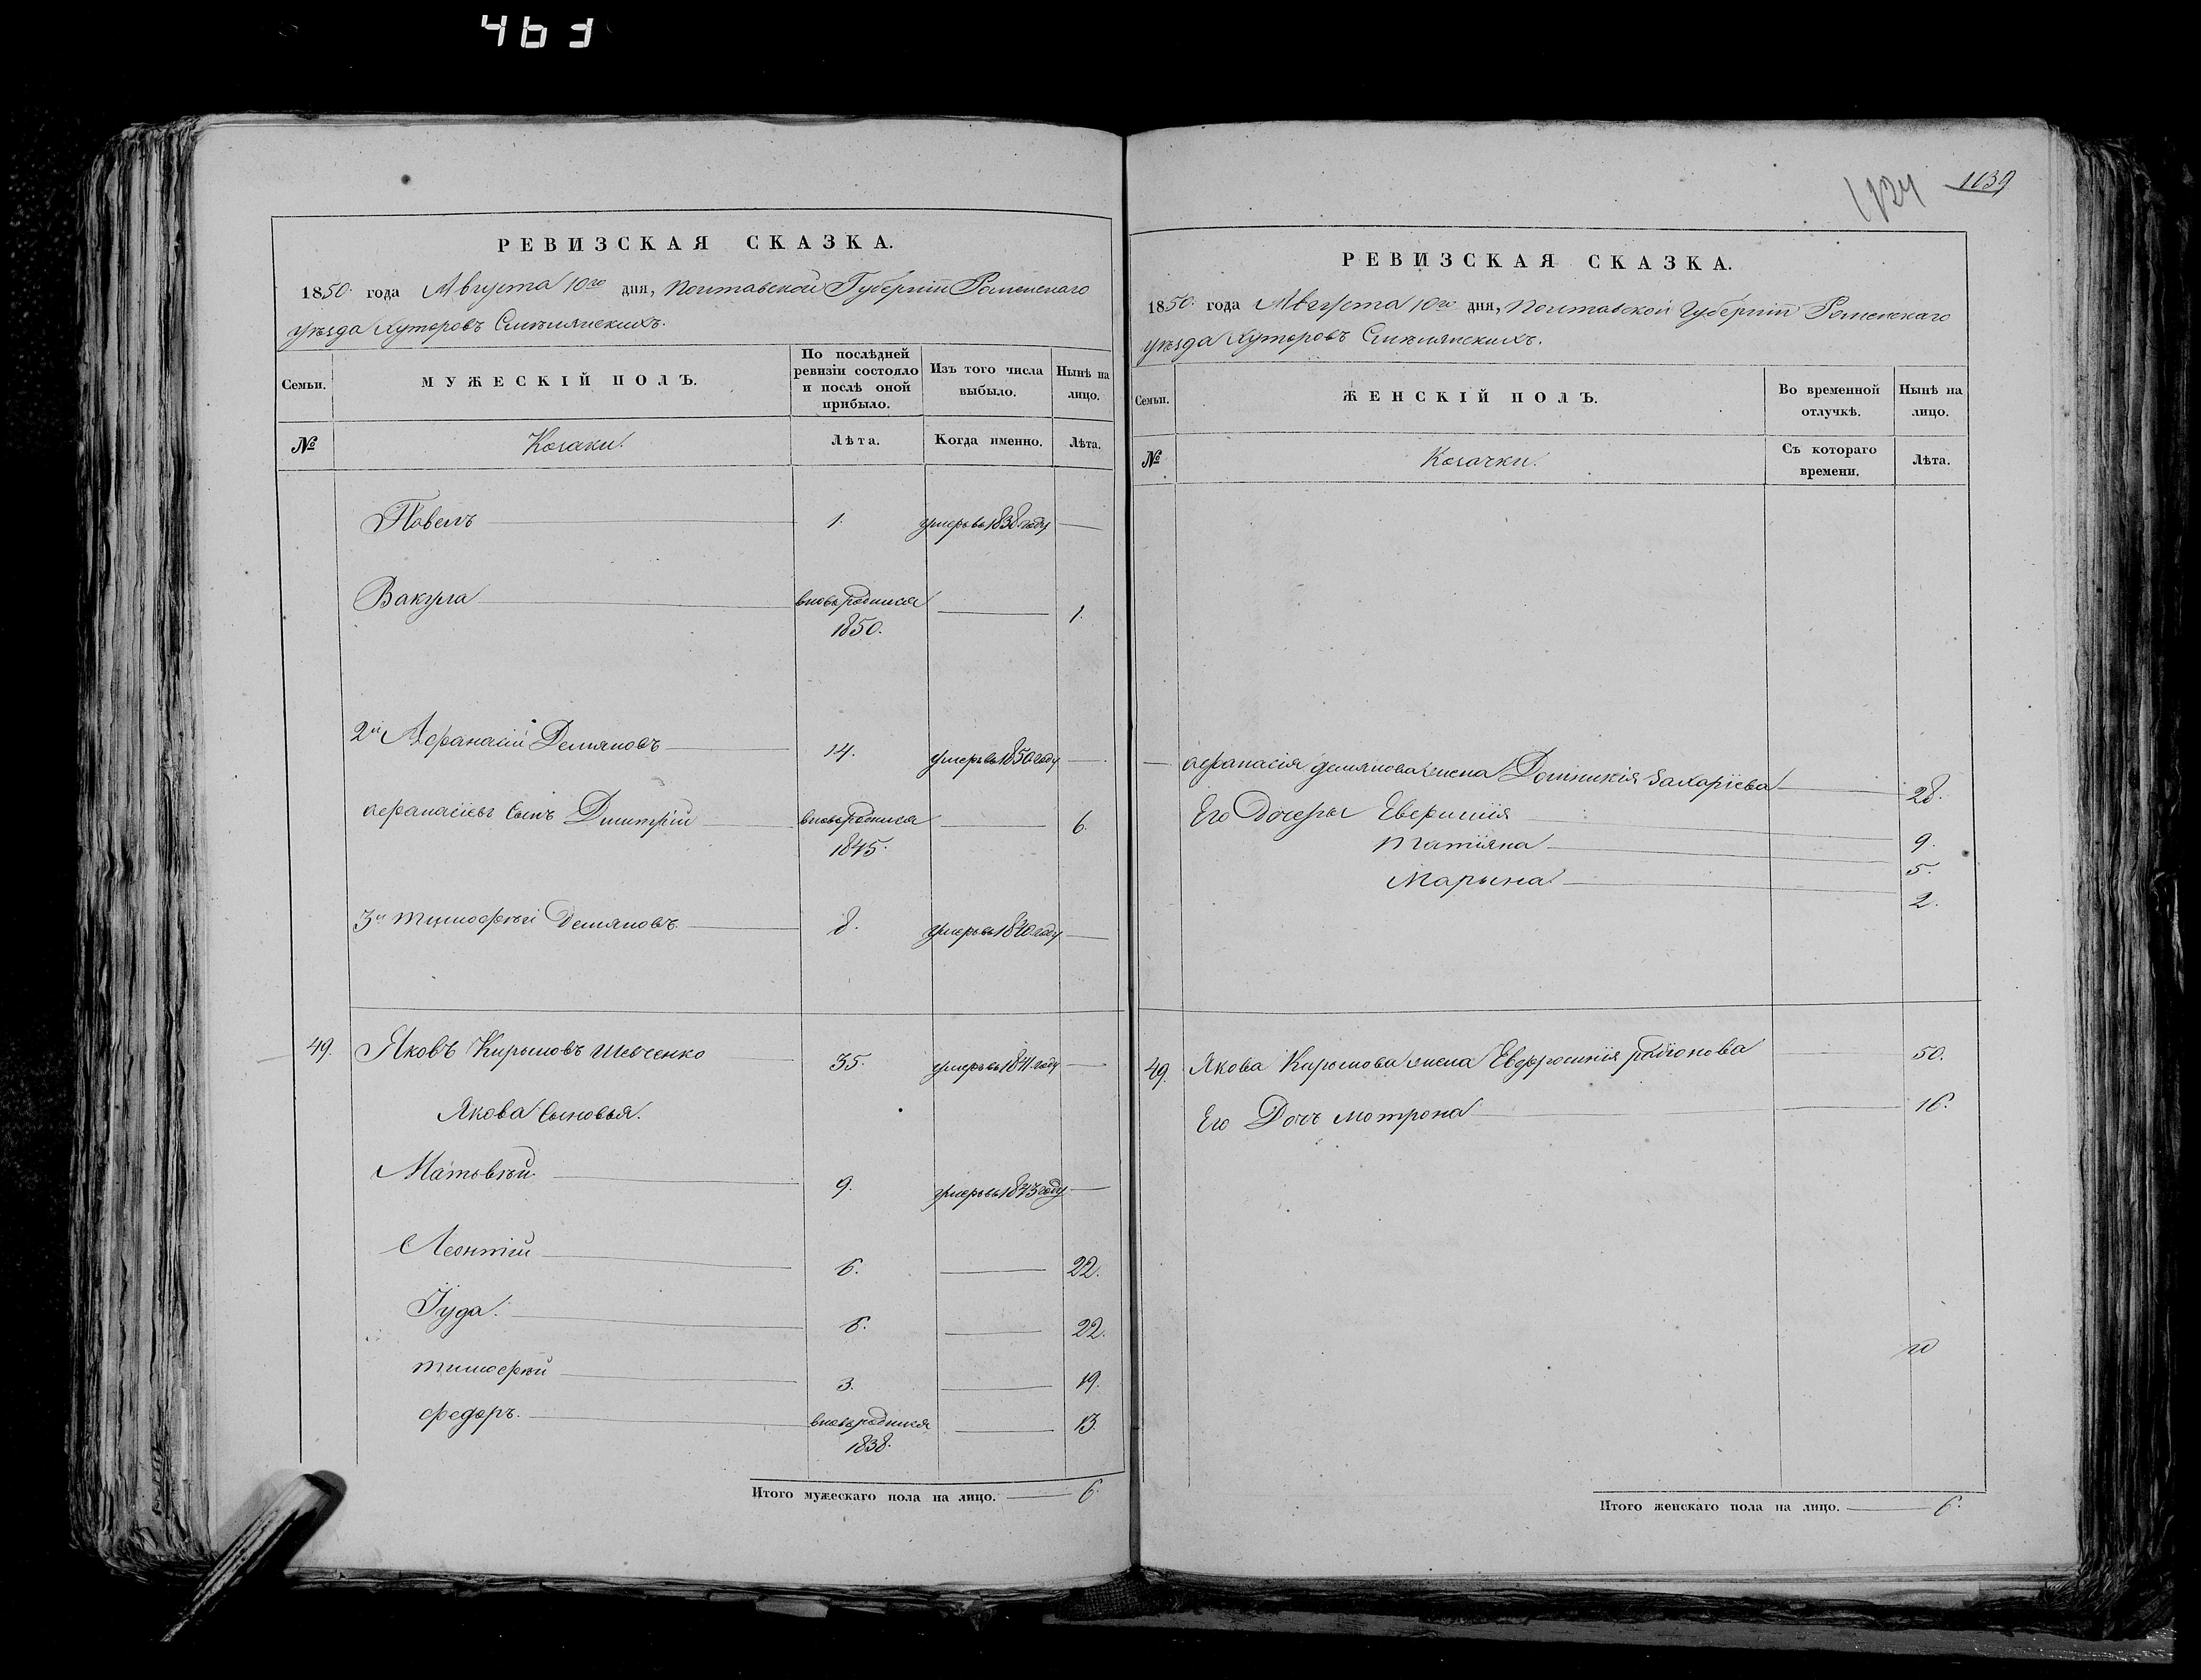 463
РЕВИЗСКАЯ СКАЗКА.
1850 года Августа 10го дня, Полтавской Губерніи Роменскаго
уѣзда Хуторовъ
Семьи.
МУЖЕСКІЙ ПОЛЪ.
По послѣдней ревизіи состояло и послѣ оной прибыло.
Изъ того числа выбыло.
Нынѣ на лицо.
№
Козаки.
Лѣта.
Когда именно.
Лѣта.
Павелъ 1. умеръ въ 1838 году
Вакула вновьродился 1850. 1.
2й Афанасій Демяновъ 14. умеръ въ 1850 году
Афанасіевъ Сынъ Дмитрій вновьродился 1845. 6.
3й Тимофѣй Демяновъ 8. умеръ въ 1840 году
49. Яковъ Кириловъ Шевченко 35. умеръ въ 1841 году
Якова Сыновья.
Матвѣй 9. умеръ въ 1843 году
Леонтій 6. 22.
Іуда. 6. 22.
Тимофѣй 3. 19.
Федоръ. вновьродился 1838. 13.
Итого мужескаго пола на лицо. 6.
1039
РЕВИЗСКАЯ СКАЗКА.
1850 года Августа 10го дня, Полтавской Губерніи Роменскаго
уѣзда Хуторовъ
Семьи.
ЖЕНСКІЙ ПОЛЪ.
Во временной отлучкѣ.
Нынѣ на лицо.
№
Козачки.
Съ котораго времени.
Лѣта.
Афанасія Демянова жена Домникія Захаріева 28.
Его Дочеры 9.
Татіяна 5.
Марына 2.
49. Якова Кирилова жена Евфросинія Радіонова 50.
Его Дочъ Мотрона 16.
Итого женскаго пола на лицо. 6.